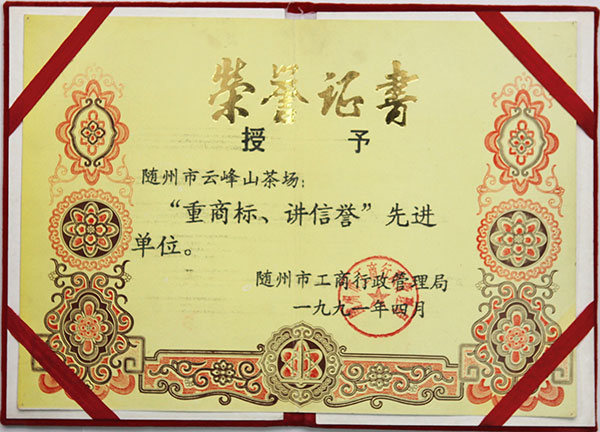 荣誉证书
授予
随州市云峰山茶场:
“重商标、讲信誉”先进
单位。
随州市工商行政管理局
一九九一年四月